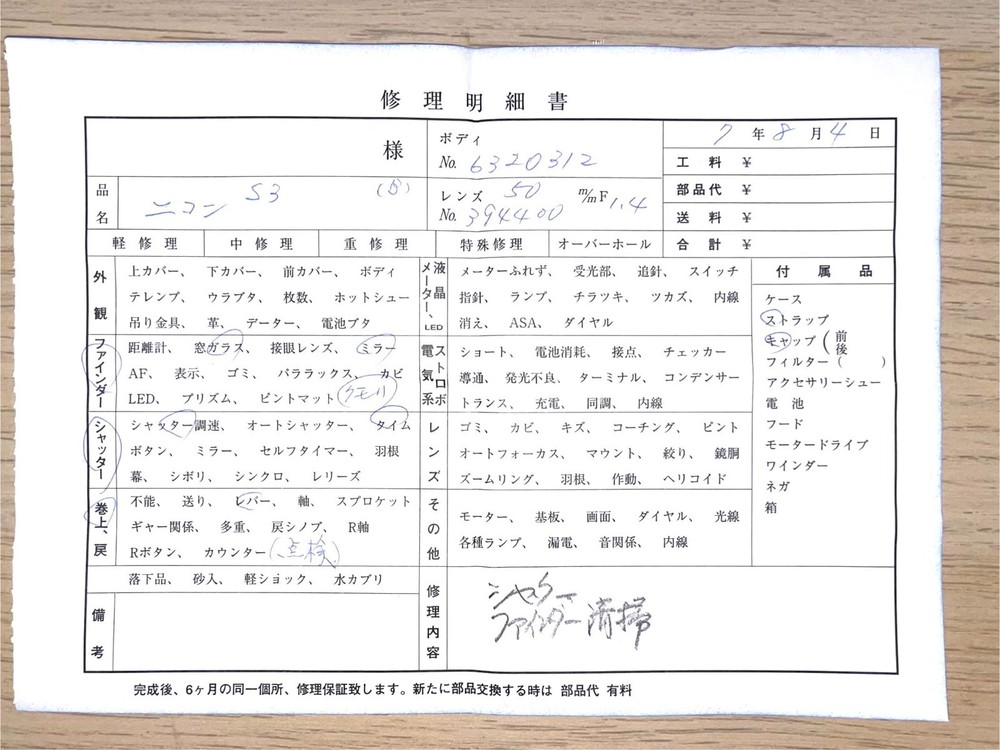 修理明細書
様
ボディ
No. 6320312
7年8月4日
工料 ¥
部品代 ¥
送料 ¥
合計 ¥
品名
ニコン S3
レンズ 50 m/m F1.4
No. 394400
軽修理 中修理 重修理 特殊修理 オーバーホール
外観
上カバー、 下カバー、 前カバー、 ボディ
テレンプ、 ウラブタ、 枚数、 ホットシュー
吊り金具、 革、 データー、 電池ブタ
ファインダー
距離計、 窓ガラス、 接眼レンズ、 ミラー
AF、 表示、 ゴミ、 パララックス、 カビ
LED、 プリズム、 ピントマット (クモリ)
シャッター
シャッター調速、 オートシャッター、 タイム
ボタン、 ミラー、 セルフタイマー、 羽根
幕、 シボリ、 シンクロ、 レリーズ
巻上、戻
不能、 送り、 レバー、 軸、 スプロケット
ギャー関係、 多重、 戻シノブ、 R軸
Rボタン、 カウンター (点検)
落下品、 砂入、 軽ショック、 水カブリ
備考
液晶
メーター、LED
メーターふれず、 受光部、 追針、 スイッチ
指針、 ランプ、 チラツキ、 ツカズ、 内線
消え、 ASA、 ダイヤル
ストロボ
電気系
ショート、 電池消耗、 接点、 チェッカー
導通、 発光不良、 ターミナル、 コンデンサー
トランス、 充電、 同調、 内線
レンズ
ゴミ、 カビ、 キズ、 コーチング、 ピント
オートフォーカス、 マウント、 絞り、 鏡胴
ズームリング、 羽根、 作動、 ヘリコイド
その他
モーター、 基板、 画面、 ダイヤル、 光線
各種ランプ、 漏電、 音関係、 内線
修理内容
シャッター
ファインダー 清掃
付属品
ケース
ストラップ
キャップ (前後
フィルター ( )
アクセサリーシュー
電池
フード
モータードライブ
ワインダー
ネガ
箱
完成後、6ヶ月の同一個所、修理保証致します。新たに部品交換する時は 部品代 有料